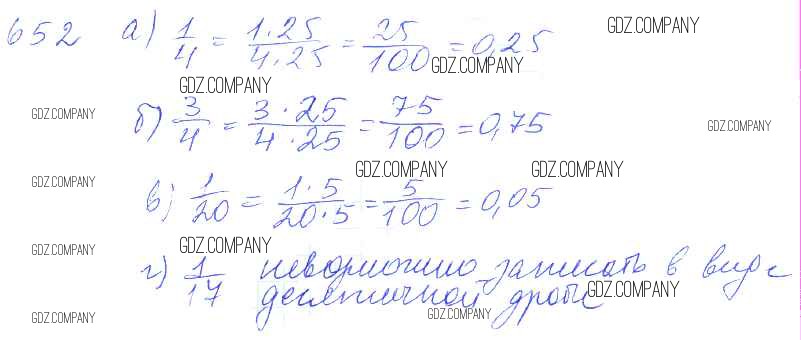 652 а) 1/4 = 1·25/4·25 = 25/100 = 0,25
GDZ.COMPANY
GDZ.COMPANY
GDZ.COMPANY
GDZ.COMPANY
б) 3/4 = 3·25/4·25 = 75/100 = 0,75
GDZ.COMPANY
GDZ.COMPANY
GDZ.COMPANY
GDZ.COMPANY
в) 1/20 = 1·5/20·5 = 5/100 = 0,05
GDZ.COMPANY
GDZ.COMPANY
г) 1/17 невозможно записать в виде
десятичной дроби
GDZ.COMPANY
GDZ.COMPANY
GDZ.COMPANY